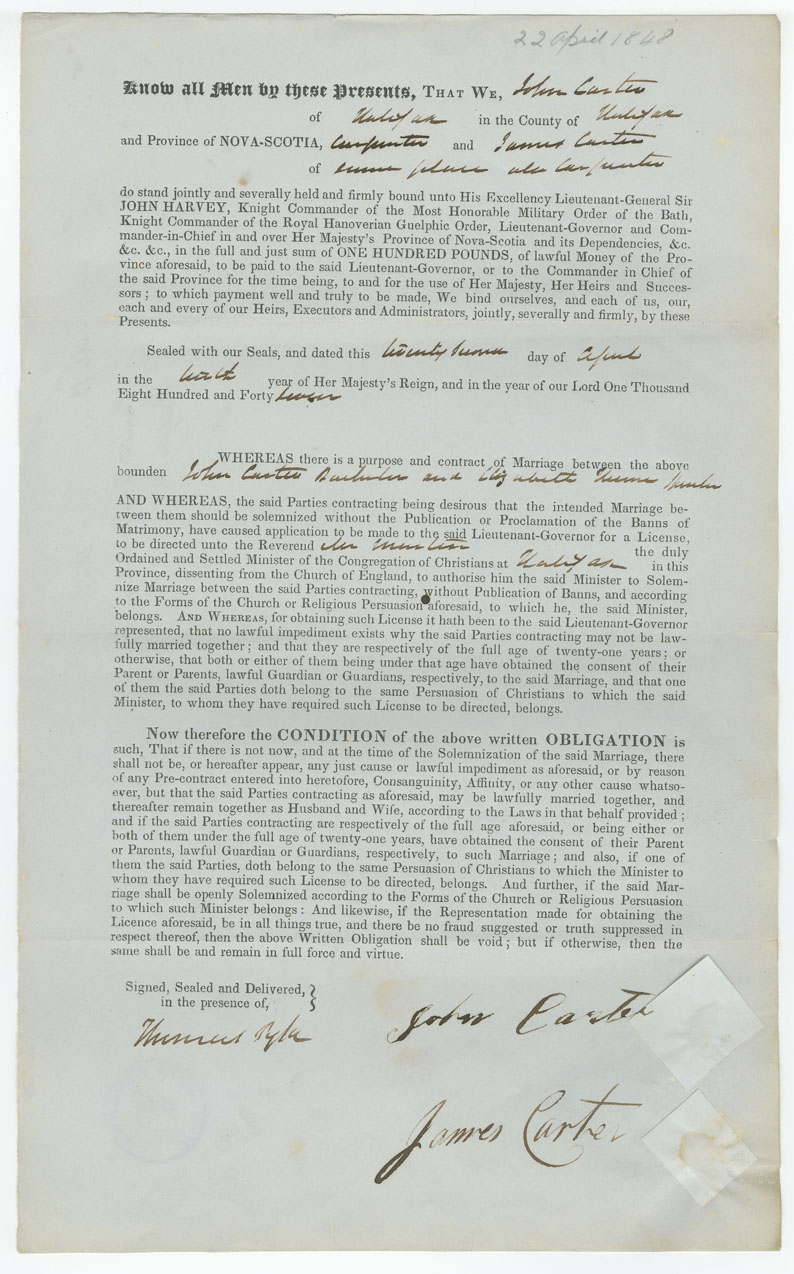 22 April 1848
Know all Men by these Presents, THAT WE, John Carter
of Halifax in the County of Halifax
and Province of NOVA-SCOTIA, Carpenter and James Carter
of same place also Carpenter
do stand jointly and severally held and firmly bound unto His Excellency Lieutenant-General Sir
JOHN HARVEY, Knight Commander of the Most Honorable Military Order of the Bath,
Knight Commander of the Royal Hanoverian Guelphic Order, Lieutenant-Governor and Com-
mander-in-Chief in and over Her Majesty's Province of Nova-Scotia and its Dependencies, &c.
&c. &c., in the full and just sum of ONE HUNDRED POUNDS, of lawful Money of the Pro-
vince aforesaid, to be paid to the said Lieutenant-Governor, or to the Commander in Chief of
the said Province for the time being, to and for the use of Her Majesty, Her Heirs and Succes-
sors; to which payment well and truly to be made, We bind ourselves, and each of us, our,
each and every of our Heirs, Executors and Administrators, jointly, severally and firmly, by these
Presents.
Sealed with our Seals, and dated this twenty second day of April
in the tenth year of Her Majesty's Reign, and in the year of our Lord One Thousand
Eight Hundred and Forty seven
WHEREAS there is a purpose and contract of Marriage between the above
bounden John Carter Bachelor and Elizabeth
AND WHEREAS, the said Parties contracting being desirous that the intended Marriage be-
tween them should be solemnized without the Publication or Proclamation of the Banns of
Matrimony, have caused application to be made to the said Lieutenant-Governor for a License,
to be directed unto the Reverend Mr Martin the duly
Ordained and Settled Minister of the Congregation of Christians at Halifax in this
Province, dissenting from the Church of England, to authorise him the said Minister to Solem-
nize Marriage between the said Parties contracting, without Publication of Banns, and according
to the Forms of the Church or Religious Persuasion aforesaid, to which he, the said Minister,
belongs. AND WHEREAS, for obtaining such License it hath been to the said Lieutenant-Governor
represented, that no lawful impediment exists why the said Parties contracting may not be law-
fully married together; and that they are respectively of the full age of twenty-one years; or
otherwise, that both or either of them being under that age have obtained the consent of their
Parent or Parents, lawful Guardian or Guardians, respectively, to the said Marriage, and that one
of them the said Parties doth belong to the same Persuasion of Christians to which the said
Minister, to whom they have required such License to be directed, belongs.
Now therefore the CONDITION of the above written OBLIGATION is
such, That if there is not now, and at the time of the Solemnization of the said Marriage, there
shall not be, or hereafter appear, any just cause or lawful impediment as aforesaid, or by reason
of any Pre-contract entered into heretofore, Consanguinity, Affinity, or any other cause whatso-
ever, but that the said Parties contracting as aforesaid, may be lawfully married together, and
thereafter remain together as Husband and Wife, according to the Laws in that behalf provided;
and if the said Parties contracting are respectively of the full age aforesaid, or being either or
both of them under the full age of twenty-one years, have obtained the consent of their Parent
or Parents, lawful Guardian or Guardians, respectively, to such Marriage; and also, if one of
them the said Parties, doth belong to the same Persuasion of Christians to which the Minister to
whom they have required such License to be directed, belongs. And further, if the said Mar-
riage shall be openly Solemnized according to the Forms of the Church or Religious Persuasion
to which such Minister belongs: And likewise, if the Representation made for obtaining the
Licence aforesaid, be in all things true, and there be no fraud suggested or truth suppressed in
respect thereof, then the above Written Obligation shall be void; but if otherwise, then the
same shall be and remain in full force and virtue.
Signed, Sealed and Delivered, }
in the presence of,
John Carter
James Carter